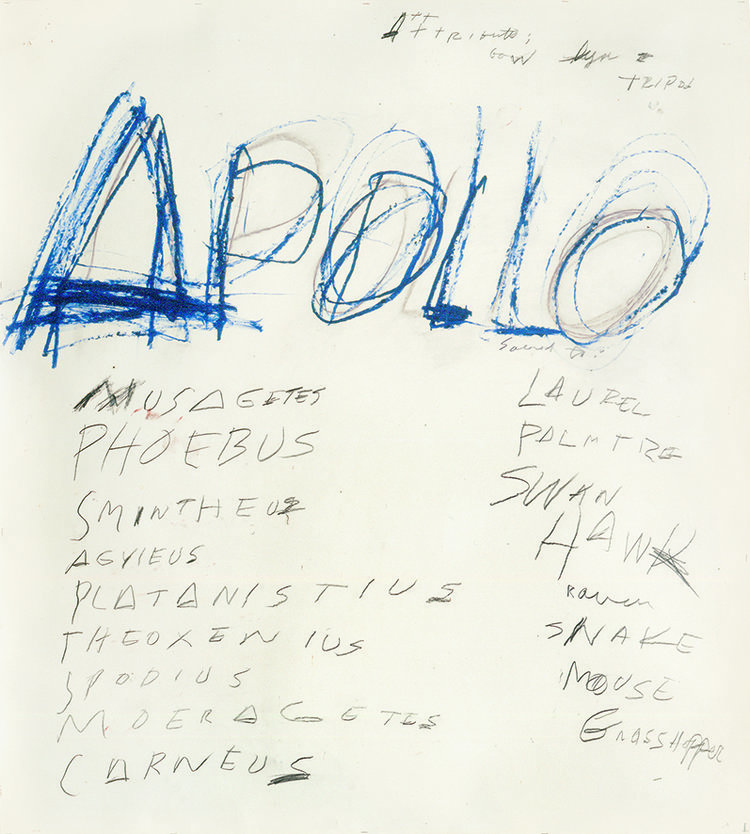 ATTribute;
bow lyre
TRIPOd
APOLLO
Sacred to:
MUSAGETES
PHOEBUS
SMINTHEUS
AGYIEUS
PLATANISTIUS
THEOXENIUS
SPODIUS
MOERAGETES
CARNEUS
LAUREL
PALMTRE
SWAN
HAWK
RAven
SNAKE
MOUSE
GrASSHopper